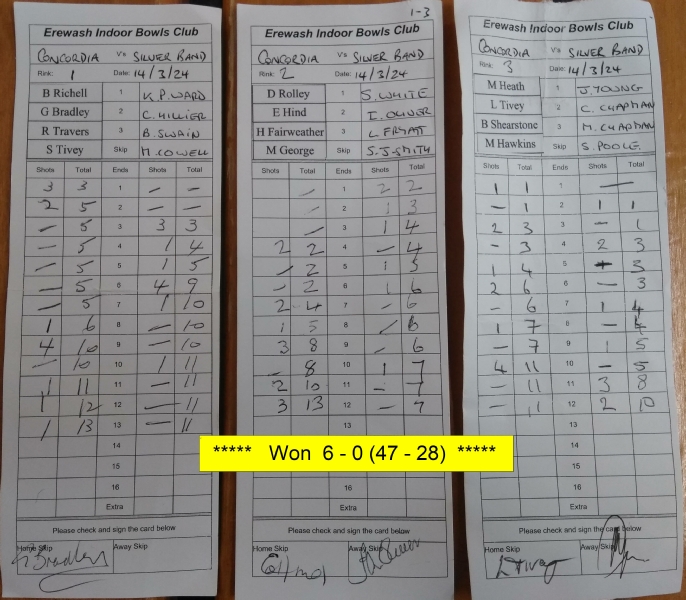 Erewash Indoor Bowls Club
CONCORDIA V's SILVER BAND
Rink: 1 Date: 14/3/24
B Richell 1 K.P. WARD
G Bradley 2 C. HILLIER
R Travers 3 B. SWAIN
S Tivey Skip M. COWELL
Shots Total Ends Shots Total
3 3 1 — —
2 5 2 — —
— 5 3 3 3
— 5 4 1 4
— 5 5 1 5
— 5 6 4 9
— 5 7 1 10
1 6 8 — 10
4 10 9 — 10
— 10 10 1 11
1 11 11 — 11
1 12 12 — 11
1 13 13 — 11
14
15
16
Extra
Please check and sign the card below
Home Skip Away Skip
G Bradley
1-3
Erewash Indoor Bowls Club
CONCORDIA V's SILVER BAND
Rink: 2 Date: 14/3/24
D Rolley 1 S. WHITE
E Hind 2 I. OLIVER
H Fairweather 3
M George Skip S.J-SMITH
Shots Total Ends Shots Total
— 1 2 2
— 2 1 3
— 3 1 4
2 2 4 — 4
— 2 5 1 5
— 2 6 1 6
2 4 7 — 6
1 5 8 — 6
3 8 9 — 6
— 8 10 1 7
2 10 11 — 7
3 13 12 — 7
13
16
Extra
Please check and sign the card below
Home Skip Away Skip
Erewash Indoor Bowls Club
CONCORDIA V's SILVER BAND
Rink: 3 Date: 14/3/24
M Heath 1 J. YOUNG
L Tivey 2 C. CHAPMAN
B Shearstone 3 M. CHAPMAN
M Hawkins Skip S. POOLE
Shots Total Ends Shots Total
1 1 1 —
— 1 2 1 1
2 3 3 — 1
— 3 4 2 3
1 4 5 — 3
2 6 6 — 3
— 6 7 1 4
1 7 8 — 4
— 7 9 1 5
4 11 10 — 5
— 11 11 3 8
— 11 12 2 10
13
14
15
16
Extra
Please check and sign the card below
Home Skip Away Skip
L Tivey
***** Won 6 - 0 (47 - 28) *****